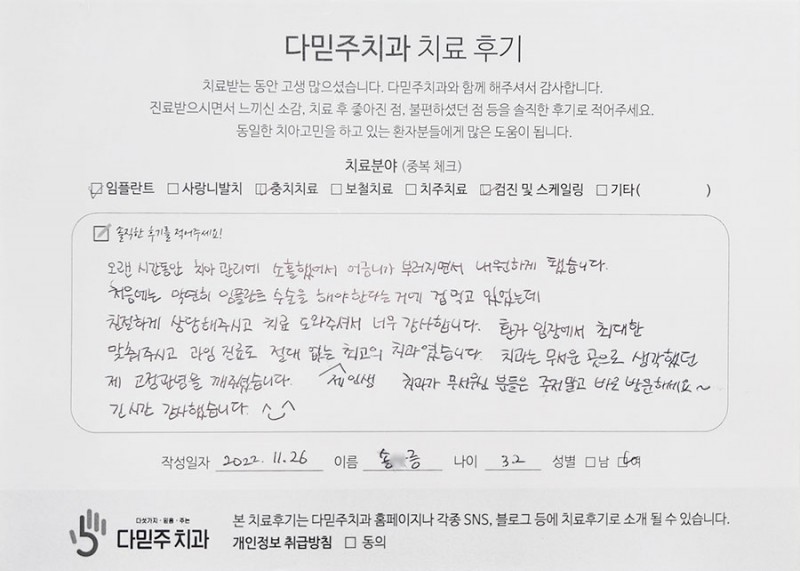 다믿주치과 치료 후기
치료받는 동안 고생 많으셨습니다. 다믿주치과와 함께 해주셔서 감사합니다.
진료받으시면서 느끼신 소감, 치료 후 좋아진 점, 불편하셨던 점 등을 솔직한 후기로 적어주세요.
동일한 치아고민을 하고 있는 환자분들에게 많은 도움이 됩니다.
치료분야 (중복 체크)
☑임플란트 □사랑니발치 ☑충치치료 □보철치료 □치주치료 ☑검진 및 스케일링 □기타( )
솔직한 후기를 적어주세요!
오랜 시간동안 치아 관리에 소홀했어서 어금니가 부러지면서 내원하게 됐습니다.
처음에는 막연히 임플란트 수술을 해야한다는 거에 겁먹고 있었는데
친절하게 상담해주시고 치료 도와주셔서 너무 감사합니다. 환자 입장에서 최대한
맞춰주시고 과잉 진료도 절대 없는 최고의 치과였습니다. 치과는 무서운 곳으로 생각했던
제 고정관념을 깨주셨습니다. 치과가 무서우신 분들은 주저말고 바로 방문하세요~
긴시간 감사했습니다. ^^
작성일자 2022. 11. 26 이름 송 나이 32 성별 □남 ☑여
다섯가지·믿음·주는
다믿주치과
본 치료후기는 다믿주치과 홈페이지나 각종 SNS, 블로그 등에 치료후기로 소개 될 수 있습니다.
개인정보 취급방침 □ 동의